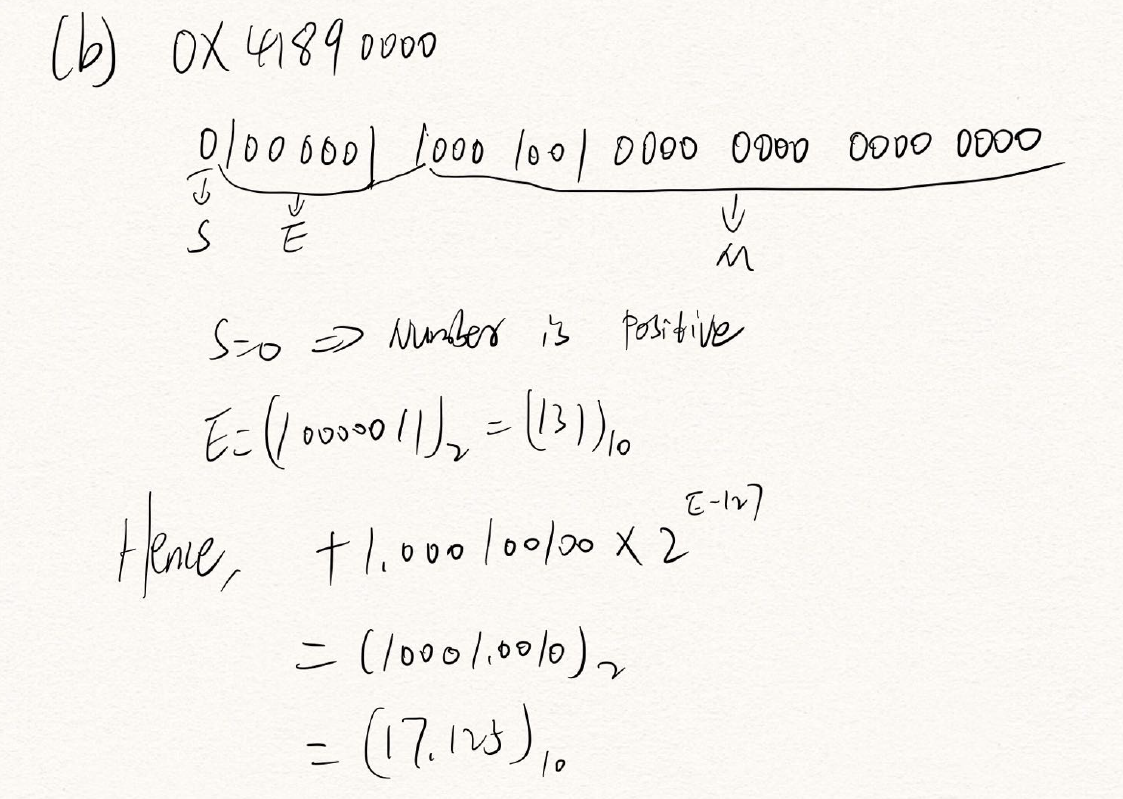 (b) 0X 41890000
0100 0001 1000 1001 0000 0000 0000 0000
S E M
S=0 ⇒ Number is positive
E=(10000011)₂ = (131)₁₀
Hence, +1.000100100 × 2^(E-127)
= (10001.0010)₂
= (17.125)₁₀